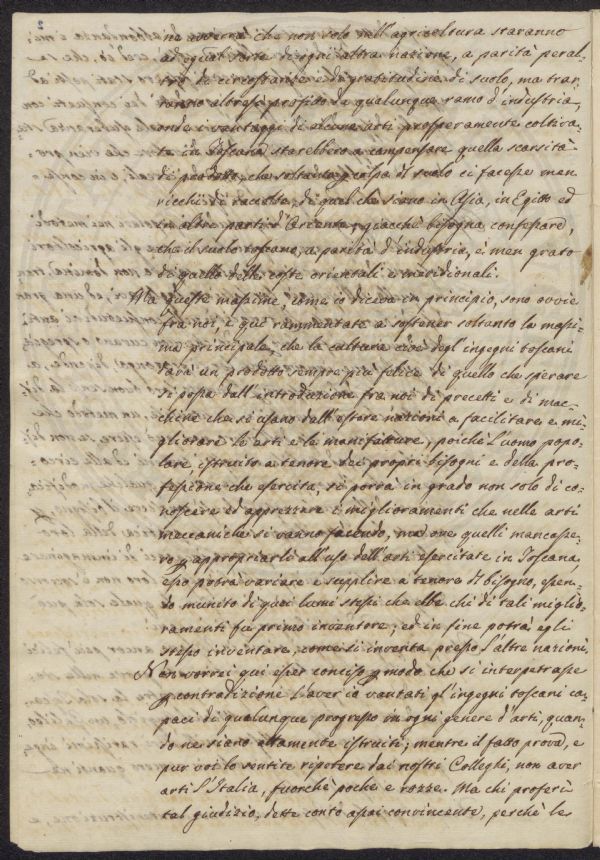 2
ne avverrà che non solo nell'agricoltura staranno
ad egual sorte di ogni altra nazione, a parità peral-
tro di circostanze e di gratitudine di suolo, ma trar-
ranno altresì profitto da qualunque ramo d'industria,
onde i vantaggi di alcune arti prosperamente coltiva-
te in Toscana starebbero a compensare quella scarsità
di prodotto, che soltanto
ricchi di raccolte, di quel che siano in Asia, in Egitto ed
in altre parti d'Oriente, giacchè bisogna confessare,
che il suolo toscano, a parità d'industria, è men grato
di quello delle coste orientali e meridionali.
Ma queste massime, come io diceva in principio, sono ovvie
fra noi, e qui rammentate a sostener soltanto la massi-
ma principale, che la cultura cioè degl'ingegni toscani
darà un prodotto sempre più felice di quello che sperare
si possa dall'introduzione fra noi di precetti e di mac-
chine che si usano dall'estere nazioni a facilitare e mi-
gliorare le arti e le manifatture, poichè l'uomo popo-
lare, istruito a tenore dei propri bisogni e della pro-
fessione che esercita, si porrà in grado non solo di co-
noscere ed apprezzare i miglioramenti che nelle arti
meccaniche si vanno facendo, ma ove quelli mancasse-
ro p appropriarli all'uso dell'arti esercitate in Toscana,
esso potrà variare e supplire a tenore del bisogno, essen-
do munito di quei lumi stessi che ebbe chi di tali miglio-
ramenti fu primo inventore; ed in fine potrà egli
stesso inventare, come si inventa presso l'altre nazioni.
Non vorrei qui esser conciso p modo che si interpetrasse
p contradizione l'aver io vantati gl'ingegni toscani ca-
paci di qualunque progresso in ogni genere d'arti, quan-
do ne siano altamente istruiti, mentre il fatto prova, e
pur voi lo sentite ripetere dai nostri Colleghi, non aver
arti l'Italia, fuorchè poche e rozze. Ma chi proferì
tal giudizio, dette conto assai convincente, perchè le